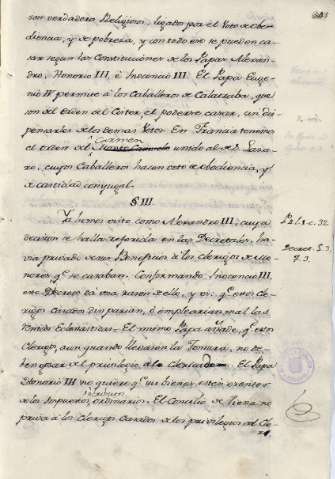 son verdaderos Religiosos, ligados por el Voto de obe-
diencia, y de pobreza, y con todo eso se pueden ca-
sar segun las Constituciones de los Papas Alexan-
dro, Honorio III, è Inocencio III. El Papa Euge-
nio IV permite à los Caballeros de Calatraba, que
son del orden del Cister, el poderse casar, sin dis-
pensarles de los demas Votos. En Francia tenemos
el orden del Carmen unido al de S. Laza-
ro, cuyos Caballeros hacen voto de obediencia, y
de castidad conyugal.
§ III.
Ya hemos visto como Alexandro III, cuya
decision se halla referida en las Decretales, ha-
via privado de sus Beneficios à los Clerigos de me-
nores q.e se casaban. Confirmando Inocencio III
ese Decreto da una razon de ello, y es: q.e esos Cle-
rigos casados disiparian, ò emplearian mal las
Rentas Eclesiasticas. El mismo Papa añade, q.e estos
Clerigos, aun quando llevaran la Tonsura, no de-
ben gozar del privilegio de Clericado. El Papa
Honorio III no quiere q.e sus bienes esten exentos
de los Impuestos ordinarios. El Concilio de Viena no
priva à los Clerigos Casados de los privilegios del Cle-
Decret. l. 3.
t. 3.